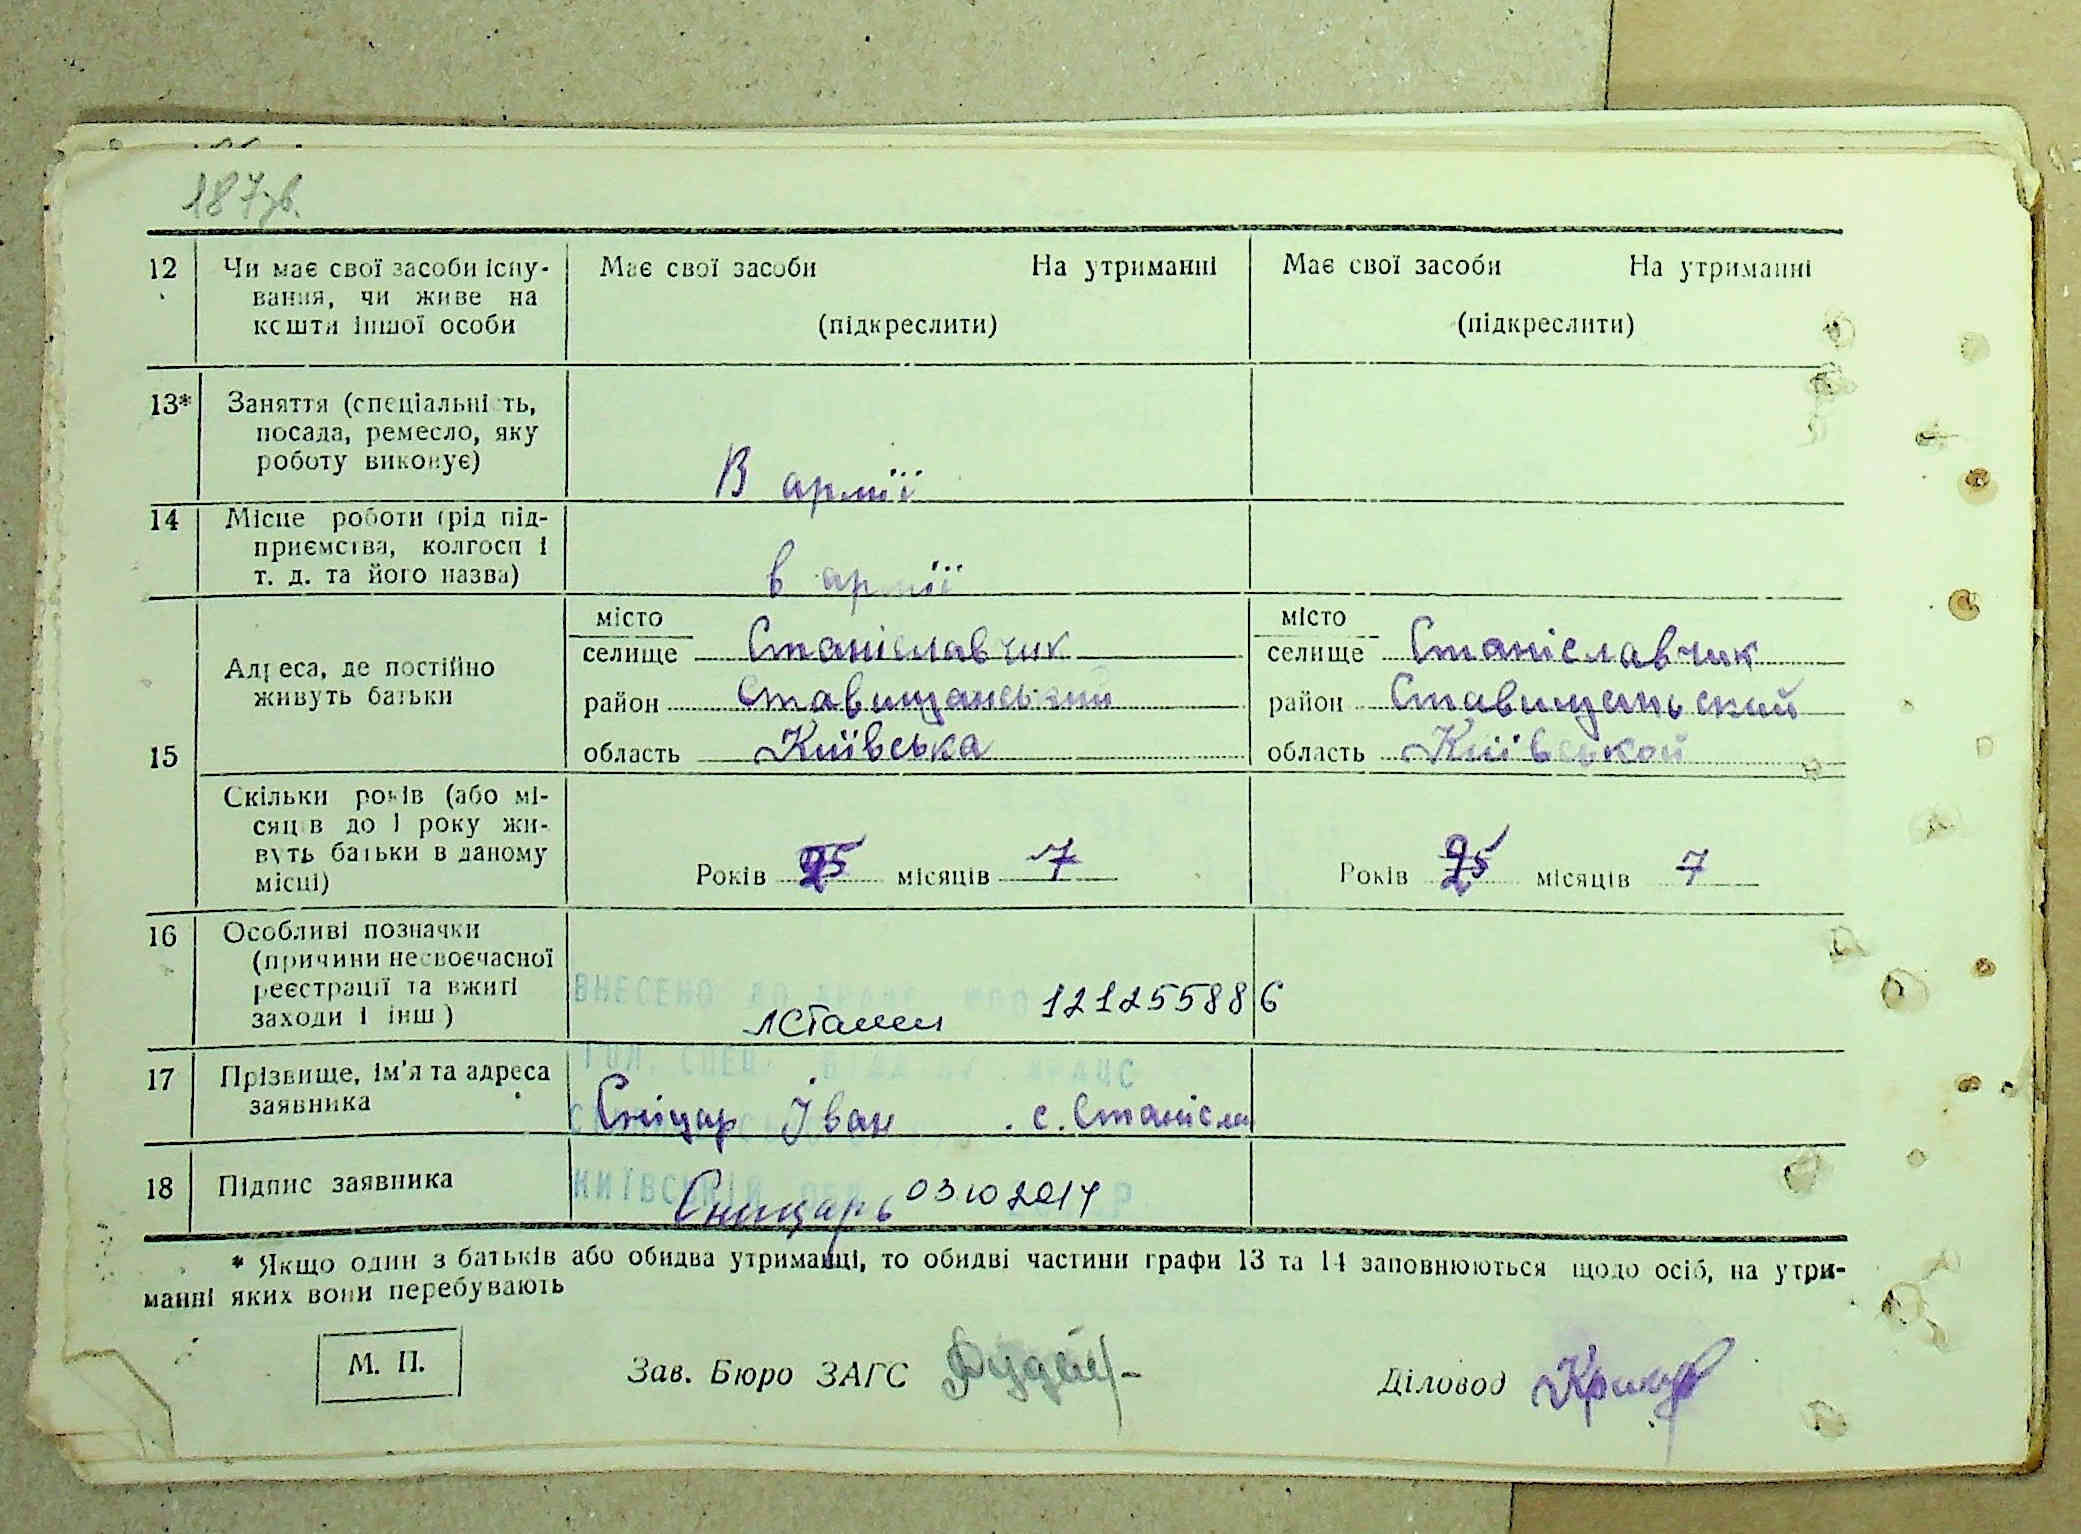 187зв.
12 Чи має свої засоби існу- Має свої засоби На утриманні Має свої засоби На утриманні
вання, чи живе на
кошти іншої особи (підкреслити) (підкреслити)
13* Заняття (спеціальність,
посада, ремесло, яку
роботу виконує) В армії
14 Місце роботи (рід під-
приємства, колгосп і
т. д. та його назва) в армії
місто місто
Адреса, де постійно селище Станіславчик селище Станіславчик
живуть батьки район Ставищанський район Ставищеньский
15 область Київська область Київськой
Скільки років (або мі-
сяців до 1 року жи-
вуть батьки в даному Років 25 місяців 7 Років 25 місяців 7
місці)
16 Особливі позначки
(причини несвоєчасної
реєстрації та вжиті ВНЕСЕНО ДО 1212558886
заходи і інш)
17 Прізвище, ім'я та адреса ГОЛ. СПЕЦ.
заявника Сніцар Іван с. Станісла
18 Підпис заявника КИЇВСЬКІЙ ОБЛ Сницарь 03 10 2014
* Якщо один з батьків або обидва утриманці, то обидві частини графи 13 та 14 заповнюються щодо осіб, на утри-
манні яких вони перебувають
М. П. Зав. Бюро ЗАГС Діловод